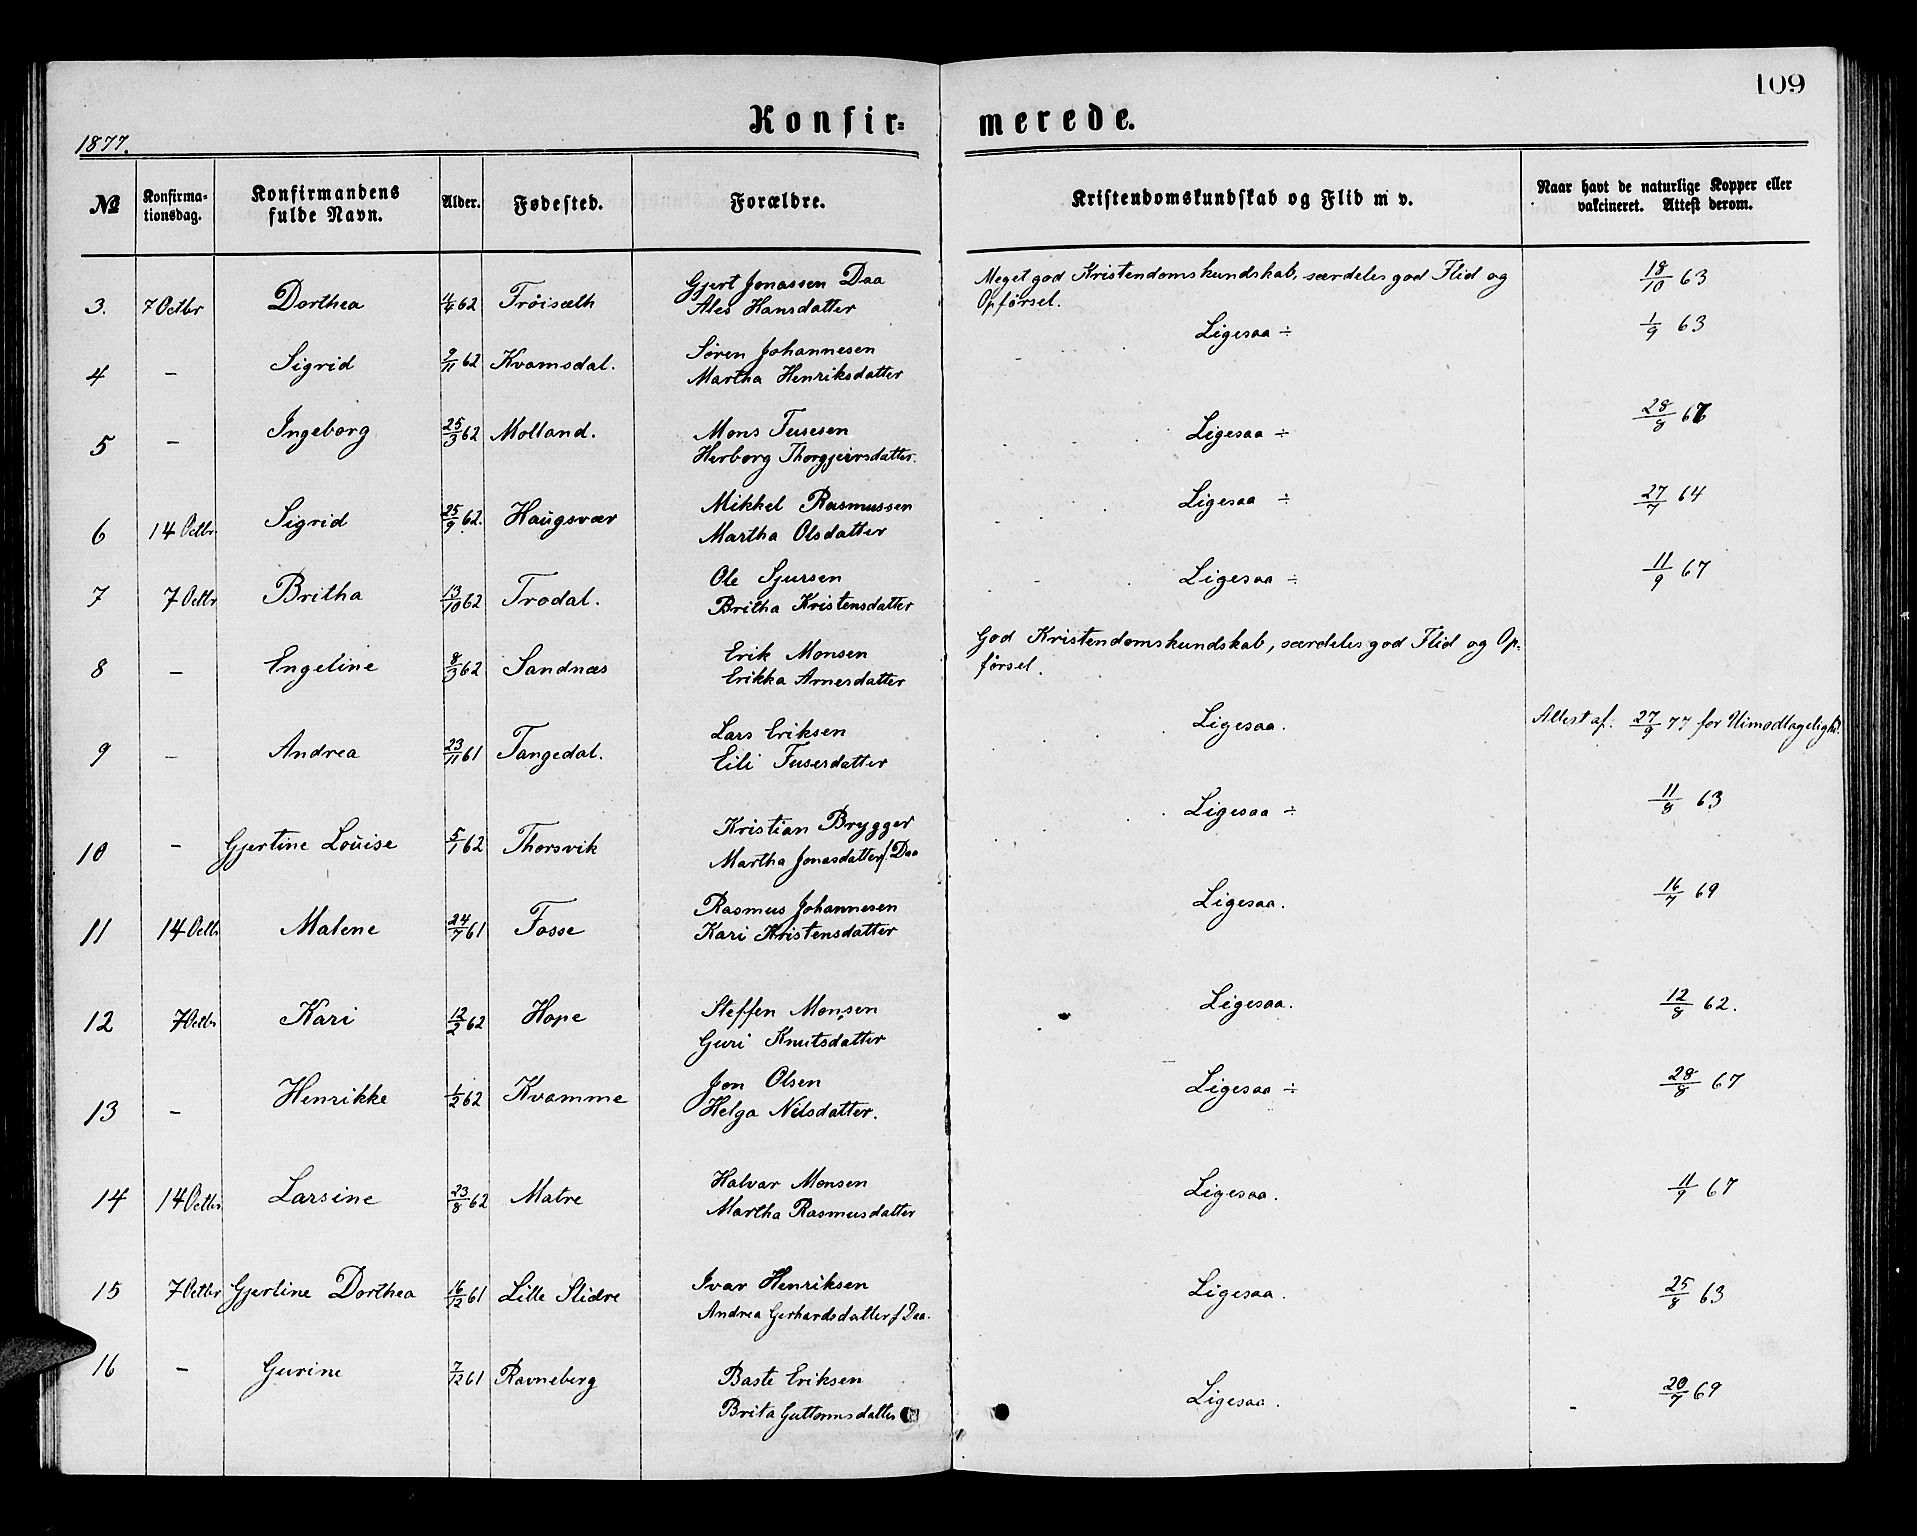 109
Konfir=merede.
1877.
№ Konfirma-tionsdag. Konfirmandens fulde Navn. Alder. Fødested. Forældre. Kristendomskundskab og Flid m v. Naar havt de naturlige Kopper eller vakcineret. Attest derom.
3. 7 Octbr Dorthea 4/4 62 Trøisæth Gjert Jonassen Daa
Ales Hansdatter
Meget god Kristendomskundskab, særdeles god Flid og
Opførsel.
18/10 63
4 - Sigrid 9/11 62 Kvamsdal. Søren Johannesen
Martha Henriksdatter
Ligesaa ÷ 1/9 63
5 - Ingeborg 25/3 62 Molland. Mons Tusesen
Herborg Thorgjeirsdatter.
Ligesaa ÷ 28/8 67
6 14 Octbr Sigrid 25/9 62. Haugsvær Mikkel Rasmussen
Martha Olsdatter
Ligesaa ÷ 27/7 64
7 7 Octbr Britha 13/10 62 Trodal. Ole Sjursen
Britha Kristensdatter
Ligesaa ÷ 11/9 67
8 - Engeline 8/3 62 Sandnæs Erik Monsen
Erikka Arnesdatter
God Kristendomskundskab, særdeles god Flid og Op-
førsel.
9 - Andrea 23/11 61 Tangedal. Lars Eriksen
Eili Tusesdatter
Ligesaa. Attest af. 27/9 77 for Uimodtagelighd.
10 - Gjertine Louise 5/1 62 Thorsvik Kristian Brygger
Martha Jonasdatter f. Daa
Ligesaa ÷ 11/8 63
11 14 Octbr Malene 24/7 61 Fosse Rasmus Johannesen
Kari Kristensdatter
Ligesaa. 16/7 69
12 7 Octbr Kari 12/2 62 Hope Steffen Monsen
Guri Knutsdatter
Ligesaa. 12/8 62.
13 - Henrikke 1/2 62 Kvamme Jon Olsen
Helga Nilsdatter.
Ligesaa ÷ 28/8 67
14 14 Octbr Larsine 23/8 62 Matre Halvar Monsen
Martha Rasmusdatter
Ligesaa. 11/9 67
15 7 Octbr Gjertine Dorthea 16/12 61 Lille Slidre Ivar Henriksen
Andrea Gerhardsdatter f Daa.
Ligesaa. 25/8 63
16 - Gurine 7/12 61 Ravneberg Baste Eriksen
Brita Guttormsdatter
Ligesaa. 20/7 69